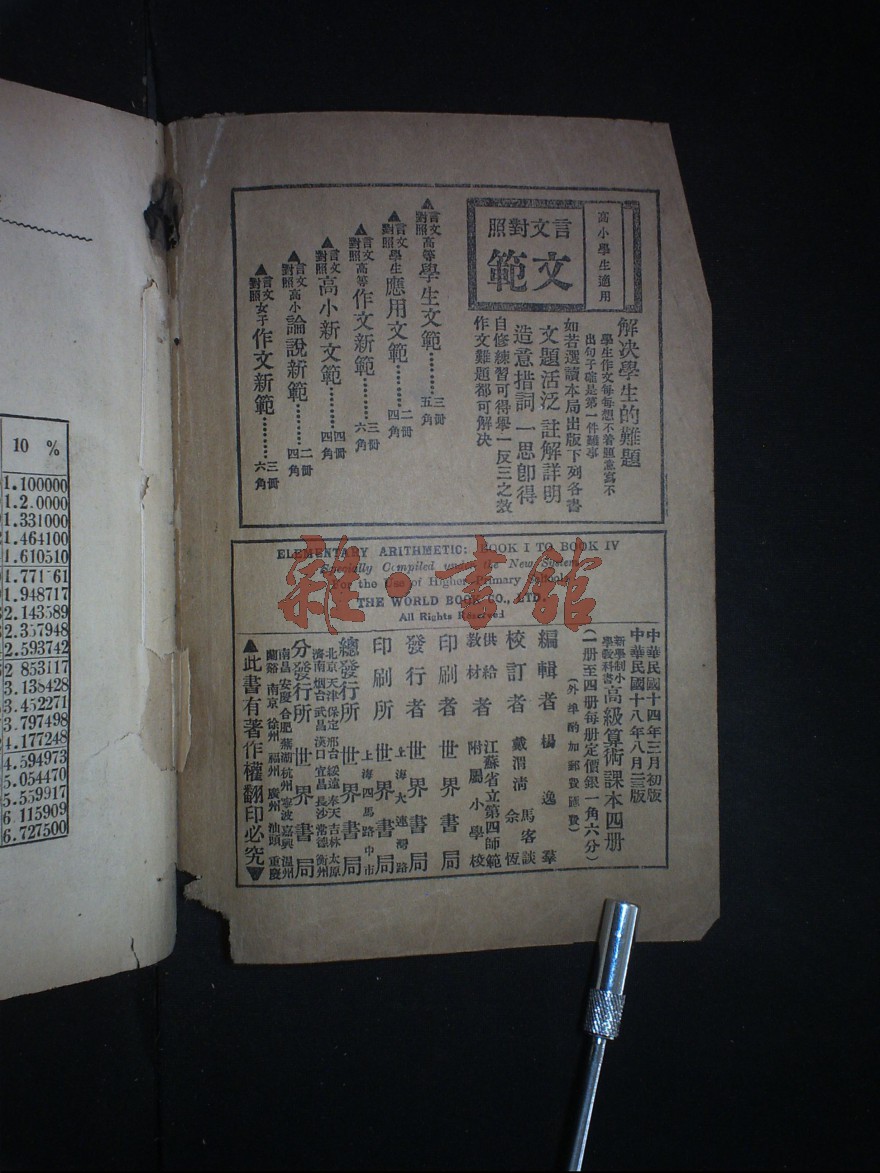 高小學生適用
言文對照
文範
解决學生的難題
學生作文每每想不着題意寫不
出句子確是第一件難事
如若選讀本局出版下列各書
文題活泛註解詳明
造意措詞一思卽得
自修練習可得舉一反三之效
作文難題都可解决
▲言文對照高等學生文範………三冊五角
▲言文對照學生應用文範………二冊四角
▲言文對照高等作文新範………三冊六角
▲言文對照高小新文範………四冊四角
▲言文對照高小論說新範………二冊四角
▲言文對照女子作文新範………三冊六角
ELEMENTARY ARITHMETIC: BOOK I TO BOOK IV
Specially Compiled under the New System
For the Use of Higher Primary Schools
THE WORLD BOOK CO., LTD.
All Rights Reserved
中華民國十四年三月初版
中華民國十八年八月二三版
新學制小學教科書高級算術課本四册
(一册至四册每册定價銀一角六分)
(外埠酌加郵費匯費)
編輯者 楊逸羣
校訂者 戴渭淸 馬客談 余恆
供給教材者 江蘇省立第四師範附屬小學校
印刷者 世界書局
發行者 上海大連灣路 世界書局
印刷所 上海四馬路中市 世界書局
總發行所 世界書局
北京 天津 保定 邢台 綏遠 奉天 吉林 太原
濟南 烟台 武昌 漢口 宜昌 長沙 常德 衡州
分發行所 世界書局
南昌 安慶 合肥 蕪湖 杭州 寧波 嘉興 温州
蘭谿 南京 徐州 福州 廣州 汕頭 重慶
▲此書有著作權翻印必究▼
雜·書館
10 %
1.100000
1.2.0000
1.331000
1.464100
1.610510
1.771 61
1.948717
2.143589
2.357948
2.593742
2 853117
3.138428
3.452271
3.797498
4.177248
4.594973
5.054470
5.559917
6.115909
6.727500